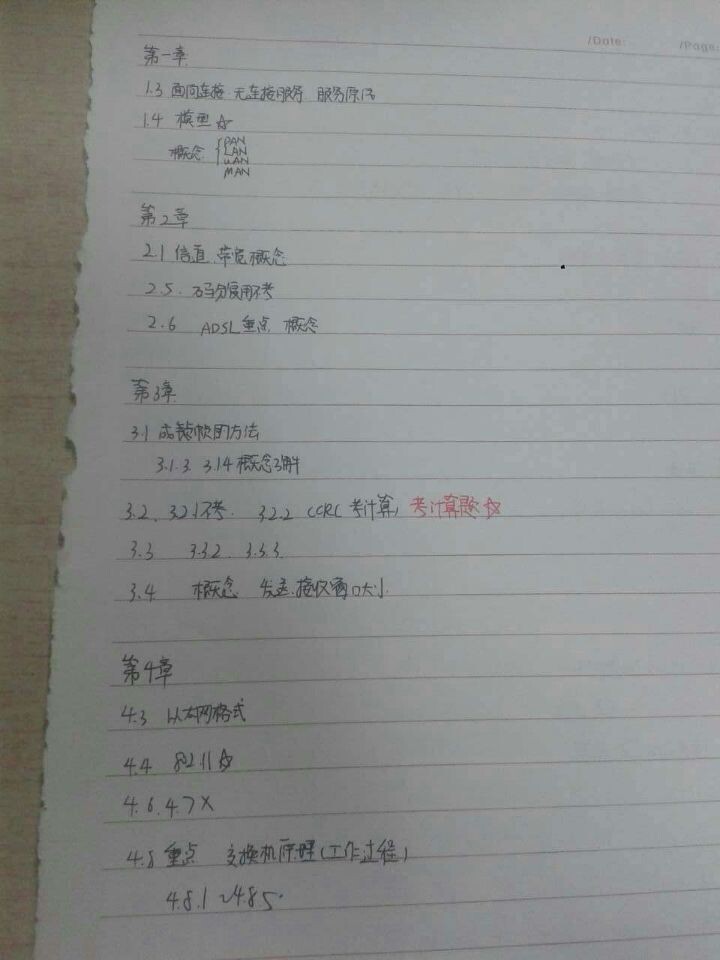 /Date: /Page:
第一章
1.3 面向连接 无连接服务 服务原语
1.4 模型☆
概念 { PAN
LAN
WAN
MAN
第2章
2.1 信道 带宽概念
2.5. 码分复用不考
2.6 ADSL重点 概念
第3章
3.1 成帧的方法
3.1.3 3.1.4 概念了解
3.2. 3.2.1不考. 3.2.2 (CRC考计算) 考计算题☆
3.3 3.3.2. 3.3.3
3.4 概念 发送.接收窗口大小
第4章
4.3 以太网格式
4.4 802.11☆
4.6. 4.7 X
4.8 重点 交换机原理(工作过程)
4.8.1~4.8.5.